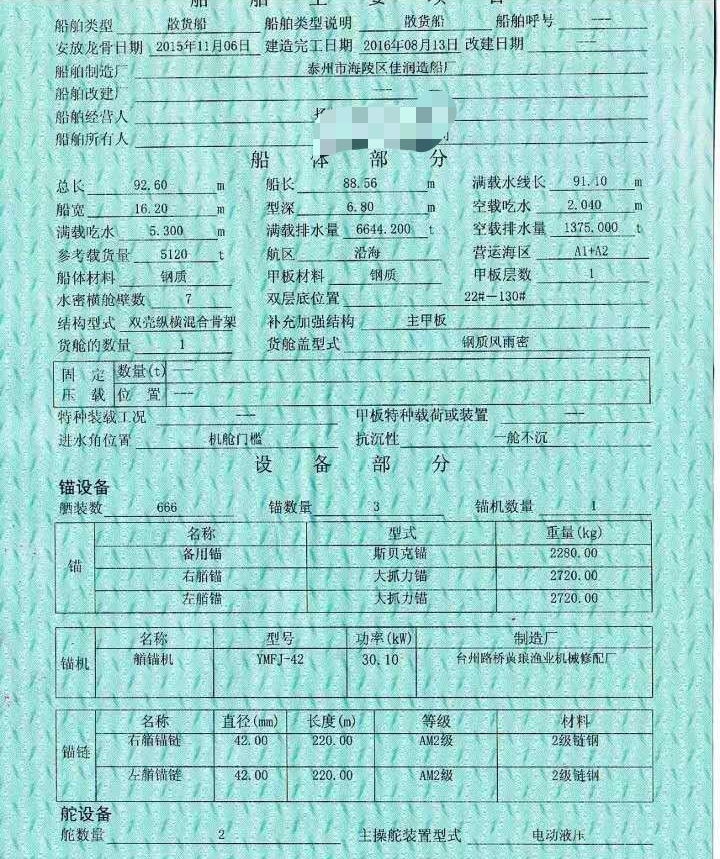 船舶主要项目
船舶类型 散货船 船舶类型说明 散货船 船舶呼号 ---
安放龙骨日期 2015年11月06日 建造完工日期 2016年08月13日 改建日期 ---
船舶制造厂 泰州市海陵区佳润造船厂
船舶改建厂 ---
船舶经营人
船舶所有人
船体部分
总长 92.60 m 船长 88.56 m 满载水线长 91.10 m
船宽 16.20 m 型深 6.80 m 空载吃水 2.040 m
满载吃水 5.300 m 满载排水量 6644.200 t 空载排水量 1375.000 t
参考载货量 5120 t 航区 沿海 营运海区 A1+A2
船体材料 钢质 甲板材料 钢质 甲板层数 1
水密横舱壁数 7 双层底位置 22#—130#
结构型式 双壳纵横混合骨架 补充加强结构 主甲板
货舱的数量 1 货舱盖型式 钢质风雨密
固定压载 数量(t) ---
位置 ---
特种装载工况 --- 甲板特种载荷或装置 ---
进水角位置 机舱门槛 抗沉性 一舱不沉
设备部分
锚设备
舾装数 666 锚数量 3 锚机数量 1
锚 名称 型式 重量(kg)
备用锚 斯贝克锚 2280.00
右艏锚 大抓力锚 2720.00
左艏锚 大抓力锚 2720.00
锚机 名称 型号 功率(kW) 制造厂
艏锚机 YMFJ-42 30.10 台州路桥黄琅渔业机械修配厂
锚链 名称 直径(mm) 长度(m) 等级 材料
右艏锚链 42.00 220.00 AM2级 2级链钢
左艏锚链 42.00 220.00 AM2级 2级链钢
舵设备
舵数量 2 主操舵装置型式 电动液压